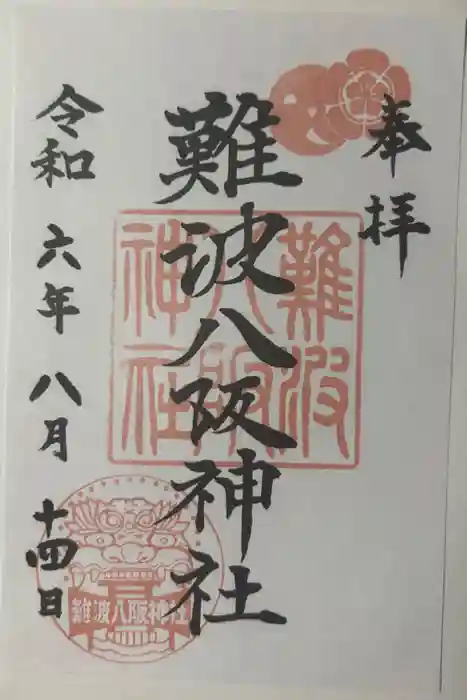 奉拝
難波八阪神社
難波八阪神社
令和六年八月十四日
難波八阪神社